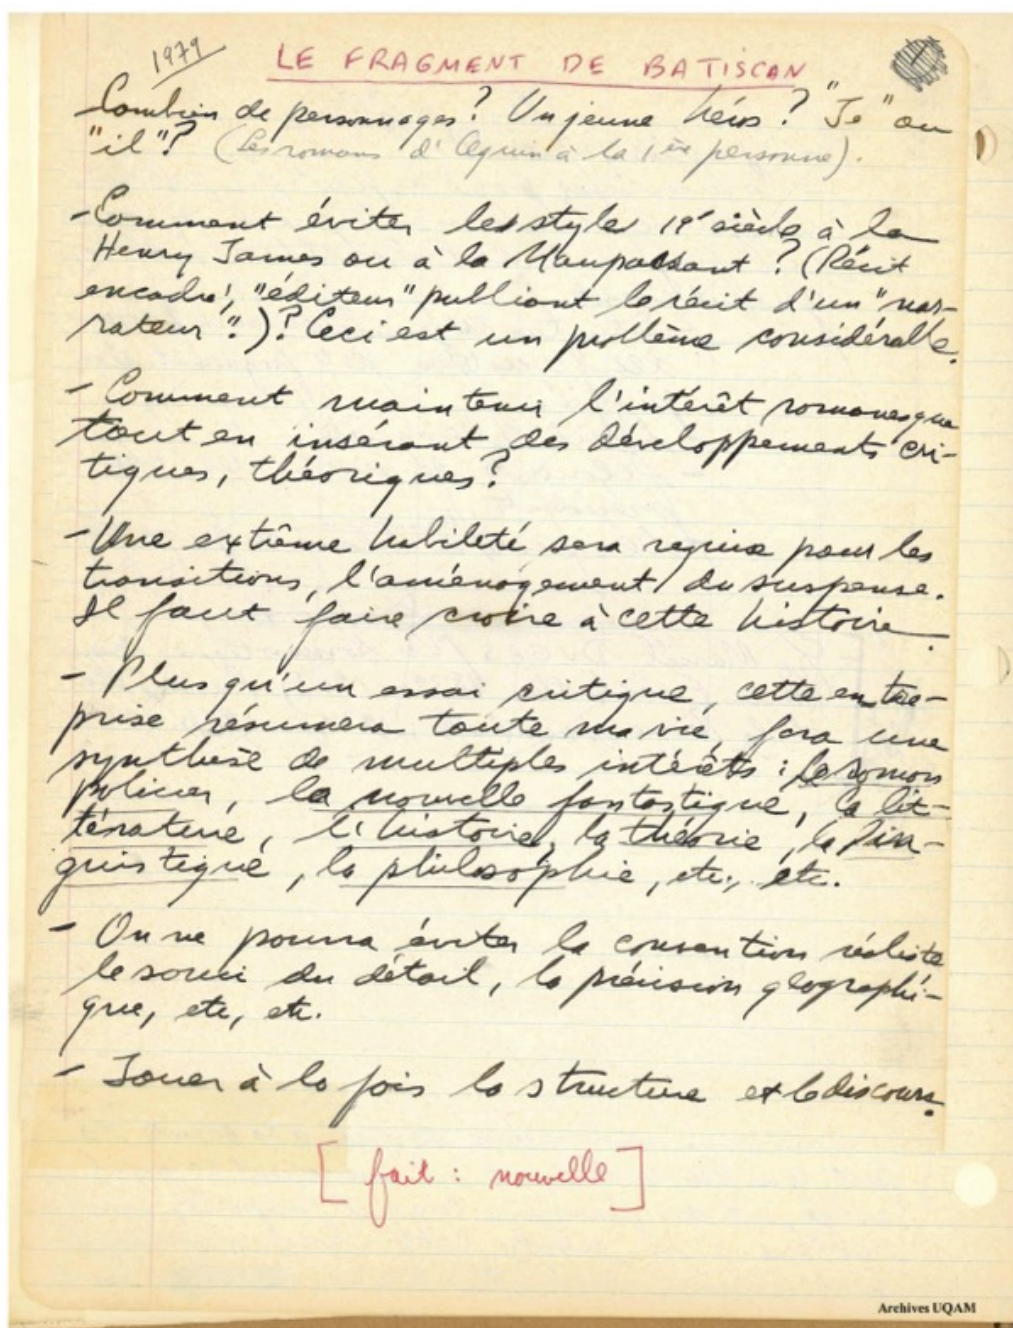 1979
LE FRAGMENT DE BATISCAN
Combien de personnages? Un jeune héros? "Je" ou
"il"? (Les romans d'Aquin à la 1ère personne).
- Comment éviter le style 19e siècle à la
Henry James ou à la Maupassant? (Récit
encadré, "éditeur" publiant le récit d'un "nar-
rateur")? Ceci est un problème considérable.
- Comment maintenir l'intérêt romanesque
tout en insérant des développements cri-
tiques, théoriques?
- Une extrême habileté sera requise pour les
transitions, l'aménagement du suspense.
Il faut faire croire à cette histoire.
- Plus qu'un essai critique, cette entre-
prise résumera toute ma vie, fera une
synthèse de multiples intérêts : le roman
policier, la nouvelle fantastique, la lit-
térature, l'histoire, la théorie, la lin-
guistique, la philosophie, etc., etc.
- On ne pourra éviter la convention réaliste
le souci du détail, la précision géographi-
que, etc, etc.
- Jouer à la fois la structure et le discours.
[fait : nouvelle]
Archives UQAM